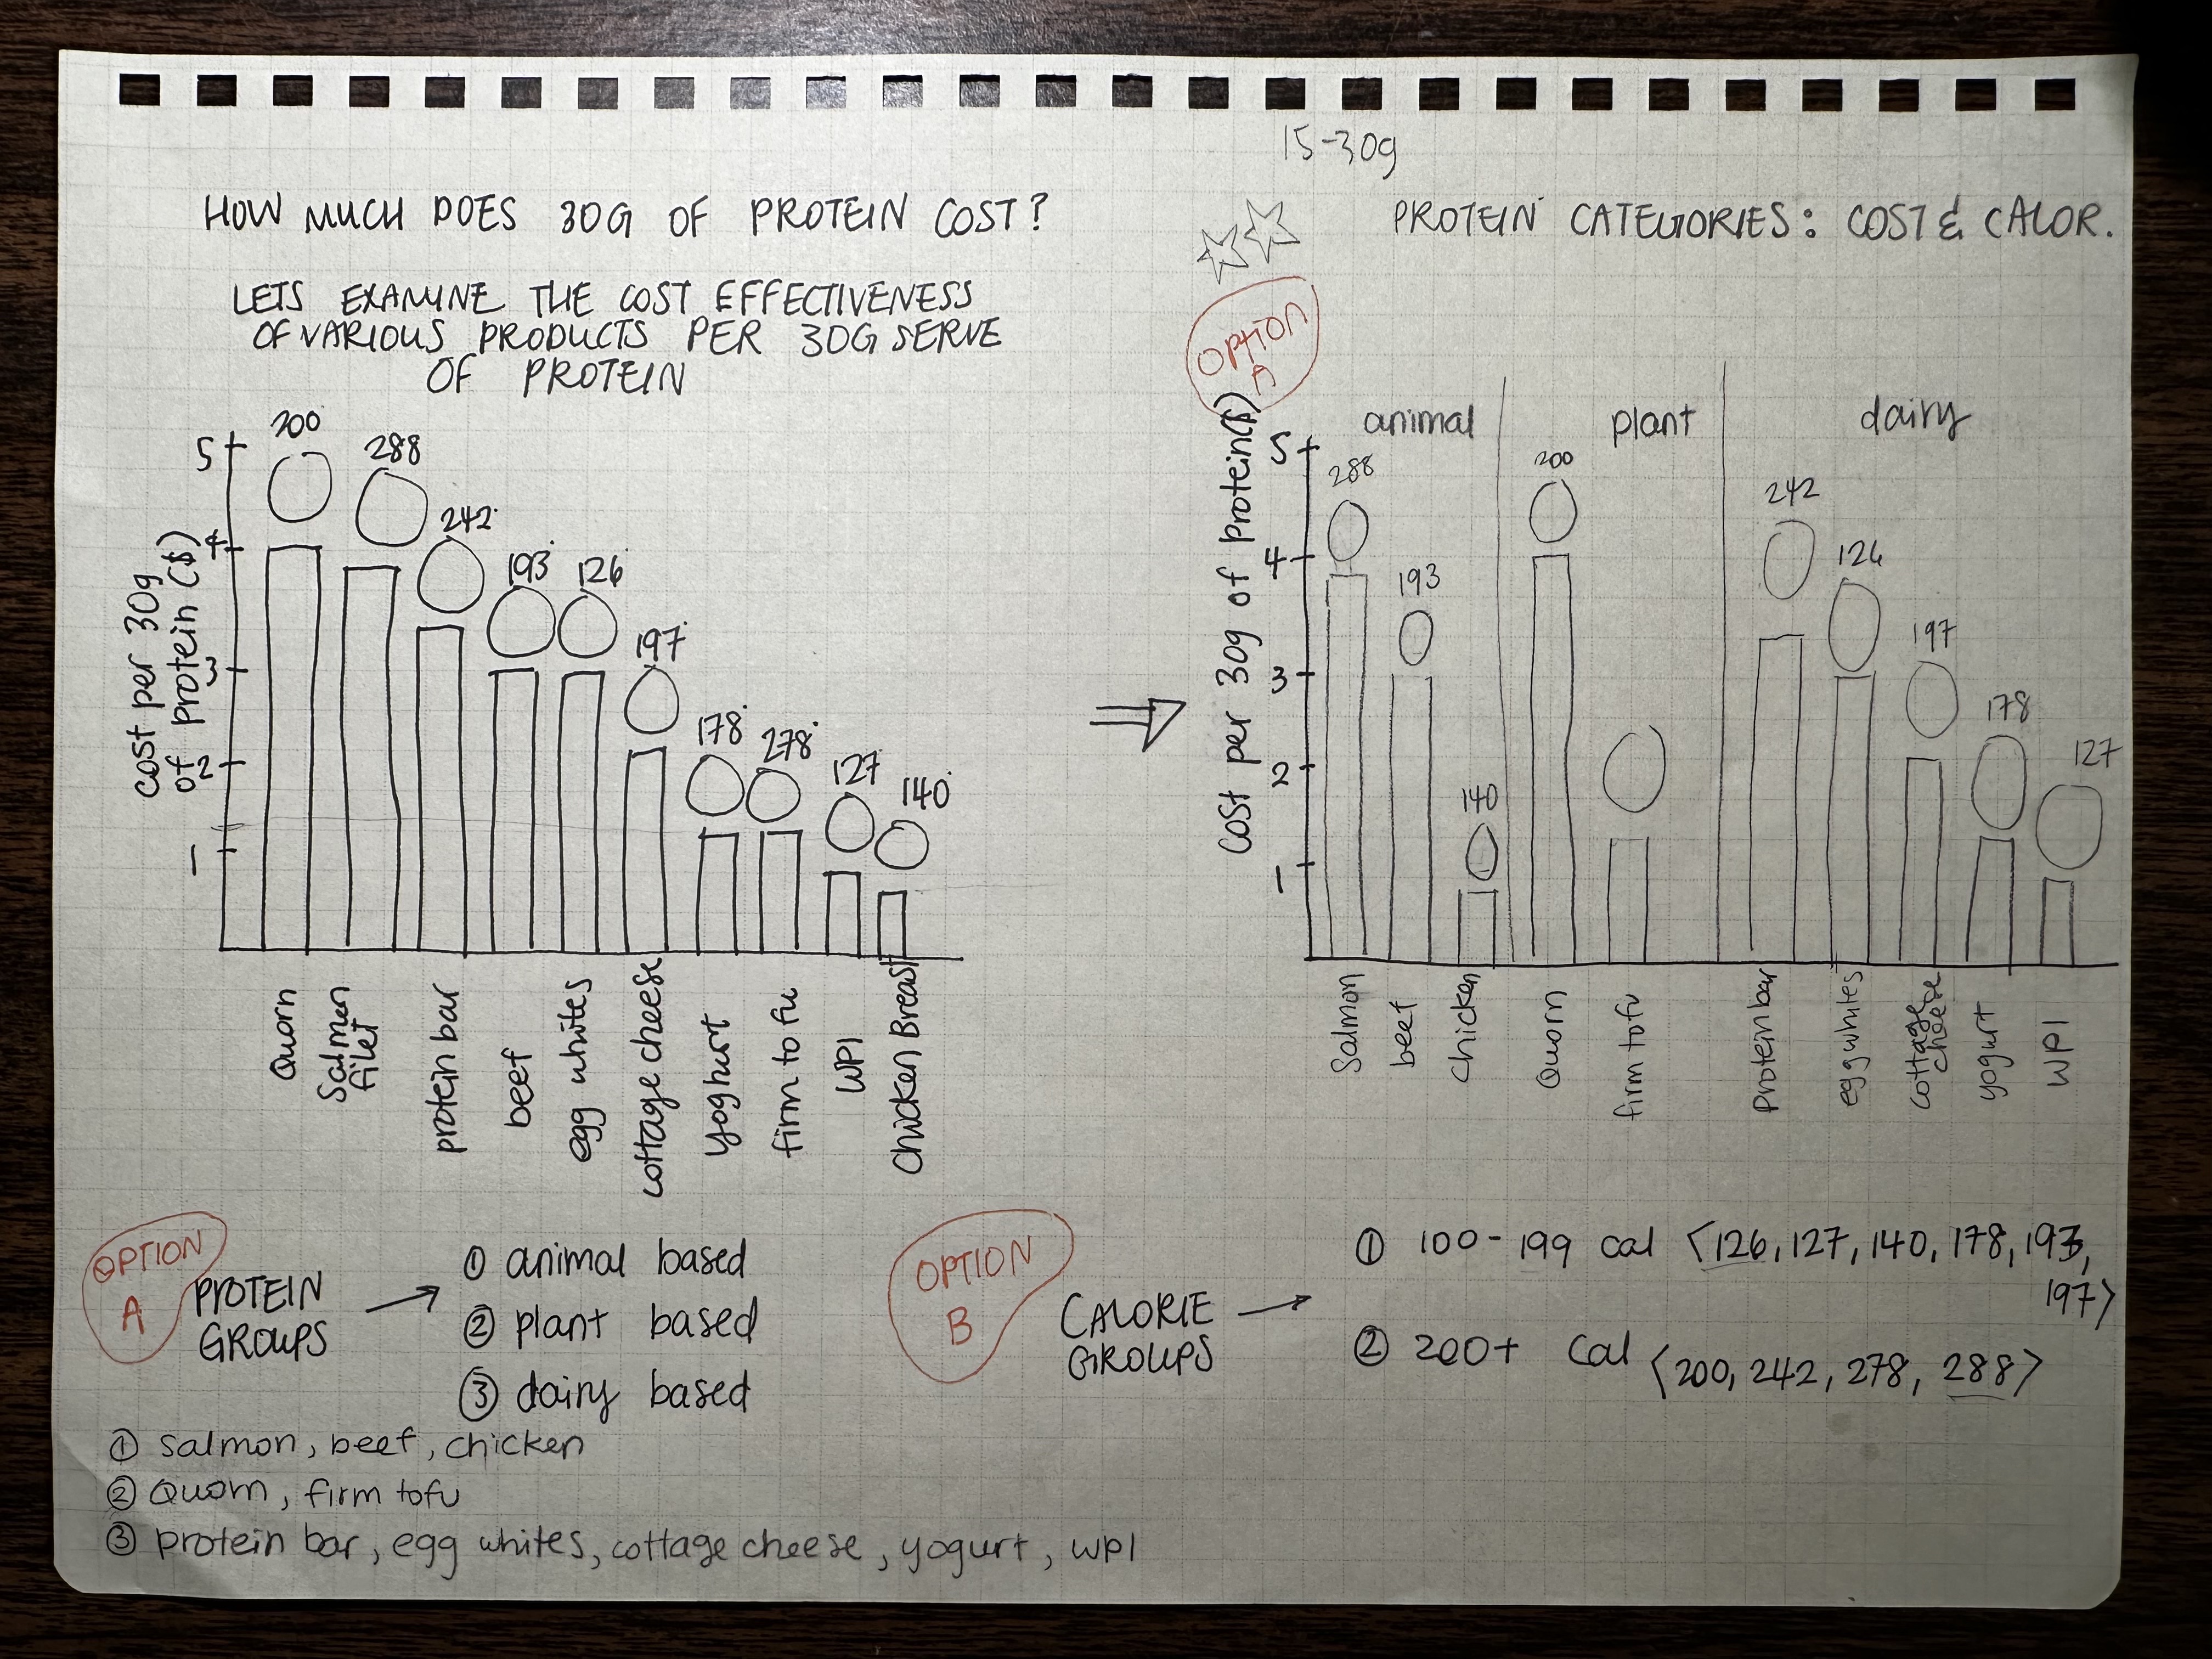 15-30g
HOW MUCH DOES 30G OF PROTEIN COST?
LETS EXAMINE THE COST EFFECTIVENESS
OF VARIOUS PRODUCTS PER 30G SERVE
OF PROTEIN
cost per 30g
of protein ($)
5
4
3
2
1
200
288
242
193
126
197
178
278
127
140
Quorn
Salmon
filet
protein bar
beef
egg whites
cottage cheese
yoghurt
firm tofu
WPI
Chicken Breast
PROTEIN CATEGORIES: COST & CALOR.
OPTION
A
cost per 30g of protein($)
animal
plant
dairy
5
4
3
2
1
288
193
140
200
242
126
197
178
127
Salmon
beef
Chicken
Quorn
firm tofu
Protein bar
egg whites
cottage
cheese
yogurt
WPI
OPTION
A
PROTEIN
GROUPS
① animal based
② plant based
③ dairy based
① salmon, beef, chicken
② Quorn, firm tofu
③ protein bar, egg whites, cottage cheese, yogurt, WPI
OPTION
B
CALORIE
GROUPS
① 100-199 cal <126, 127, 140, 178, 193,
197>
② 200+ cal <200, 242, 278, 288>